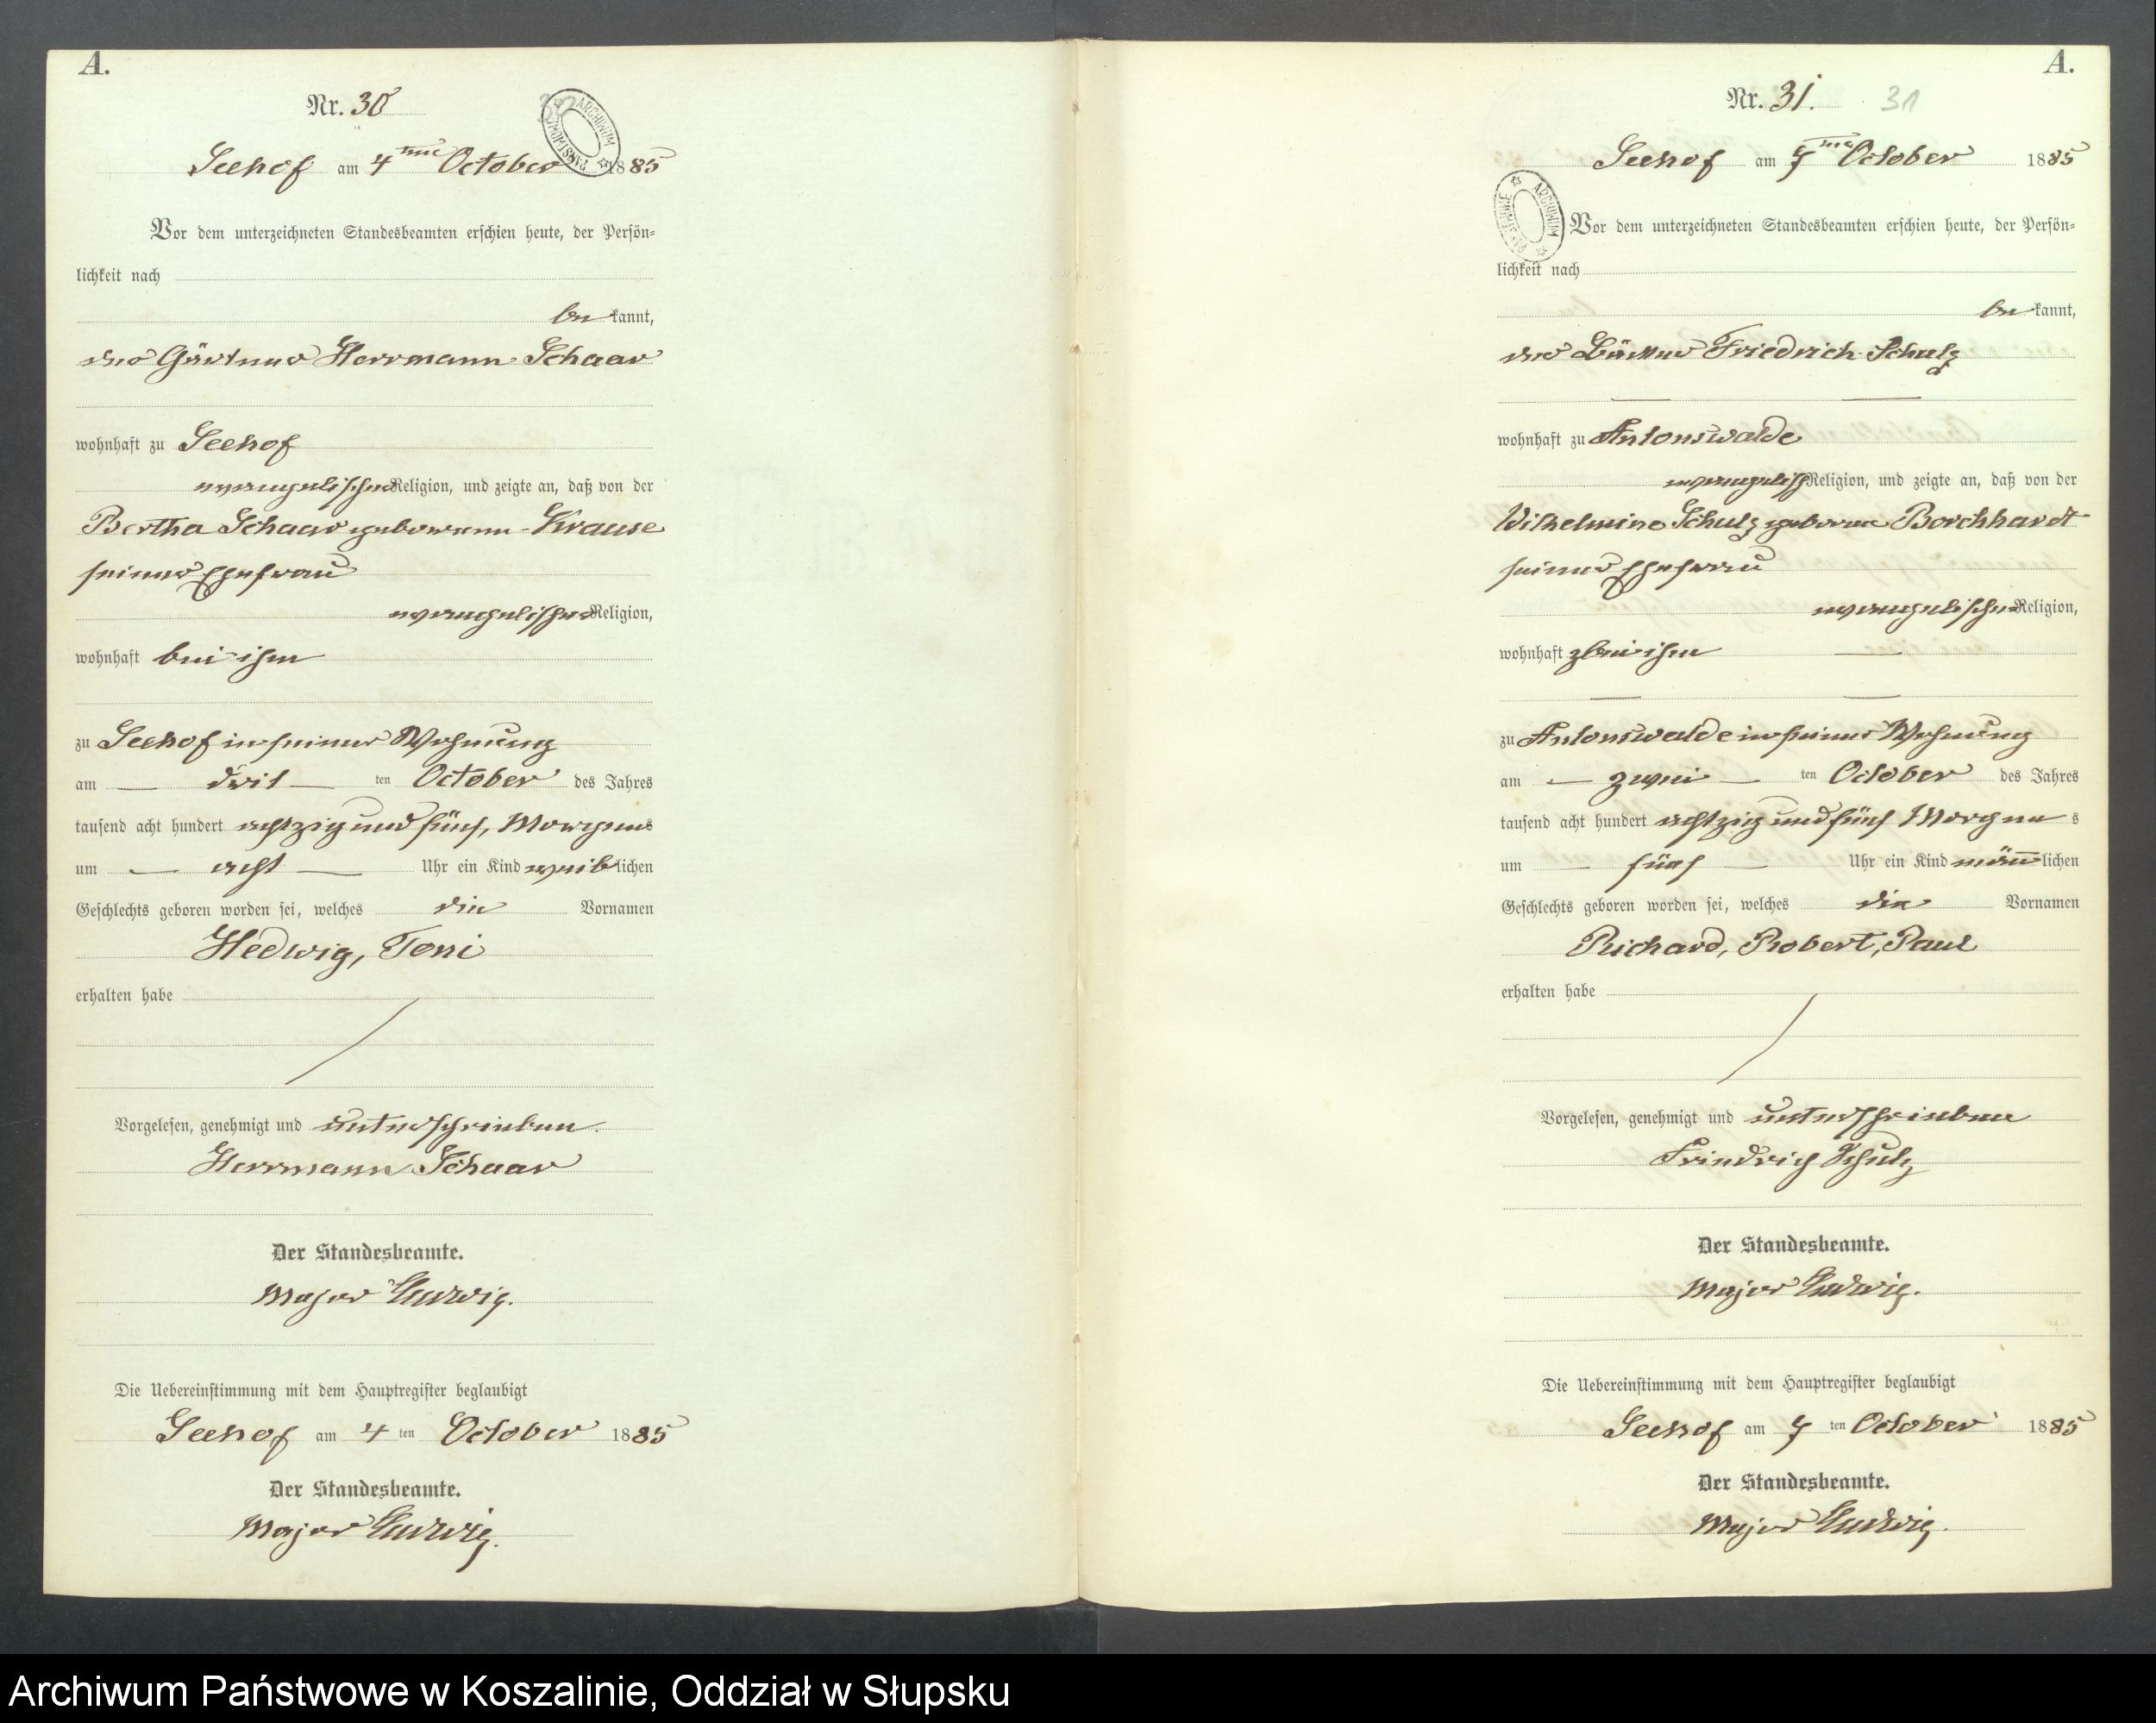 A.
Nr. 30
30
ARCHIWUM PAŃSTWOWE
Seehof am 4ten October 1885
Vor dem unterzeichneten Standesbeamten erschien heute, der Persön-
lichkeit nach
be kannt,
der Gärtner Herrmann Schaar
wohnhaft zu Seehof
evangelischer Religion, und zeigte an, daß von der
Bertha Schaar geborenen Krause
seiner Ehefrau
evangelischer Religion,
wohnhaft bei ihm
zu Seehof in seiner Wohnung
am — drit — ten October des Jahres
tausend acht hundert achtzig und fünf, Morgens
um — acht — Uhr ein Kind weiblichen
Geschlechts geboren worden sei, welches die Vornamen
Hedwig, Toni
erhalten habe
Vorgelesen, genehmigt und unterschrieben.
Herrmann Schaar
Der Standesbeamte.
Major Ludwig.
Die Uebereinstimmung mit dem Hauptregister beglaubigt
Seehof am 4 ten October 1885
Der Standesbeamte.
Major Ludwig.
A.
Nr. 31.
31
Seehof am 7ten October 1885
ARCHIWUM
Vor dem unterzeichneten Standesbeamten erschien heute, der Persön-
lichkeit nach
be kannt,
der Friedrich Schulz
wohnhaft zu Antonswalde
evangelisch Religion, und zeigte an, daß von der
Wilhelmine Schulz geborene Borchhardt
seiner Ehefrau
evangelischer Religion,
wohnhaft bei ihm —
zu Antonswalde in seiner Wohnung
am — zwei — ten October des Jahres
tausend acht hundert achtzig und fünf Morgens
um — fünf — Uhr ein Kind männlichen
Geschlechts geboren worden sei, welches die Vornamen
Richard, Robert, Paul
erhalten habe
Vorgelesen, genehmigt und unterschrieben
Friedrich Schulz
Der Standesbeamte.
Major Ludwig.
Die Uebereinstimmung mit dem Hauptregister beglaubigt
Seehof am 7 ten October 1885
Der Standesbeamte.
Major Ludwig.
Archiwum Państwowe w Koszalinie, Oddział w Słupsku